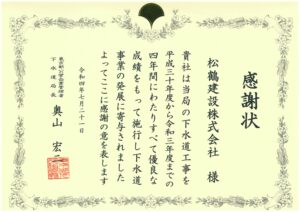 感謝状
松鶴建設株式会社 様
貴社は当局の下水道工事を
平成三十年度から令和三年度までの
四年間にわたりすべて優良な
成績をもって施行し下水道
事業の発展に寄与されました
よってここに感謝の意を表します
令和四年七月二十一日
下水道局長 奥山 宏二